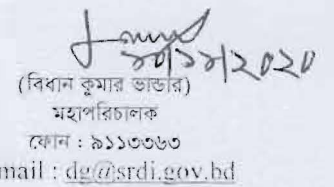 ২০/১২/২০২০
(বিধান কুমার ভান্ডার)
মহাপরিচালক
ফোন : ৯১১৩৩৬৩
mail : dg@srdi.gov.bd